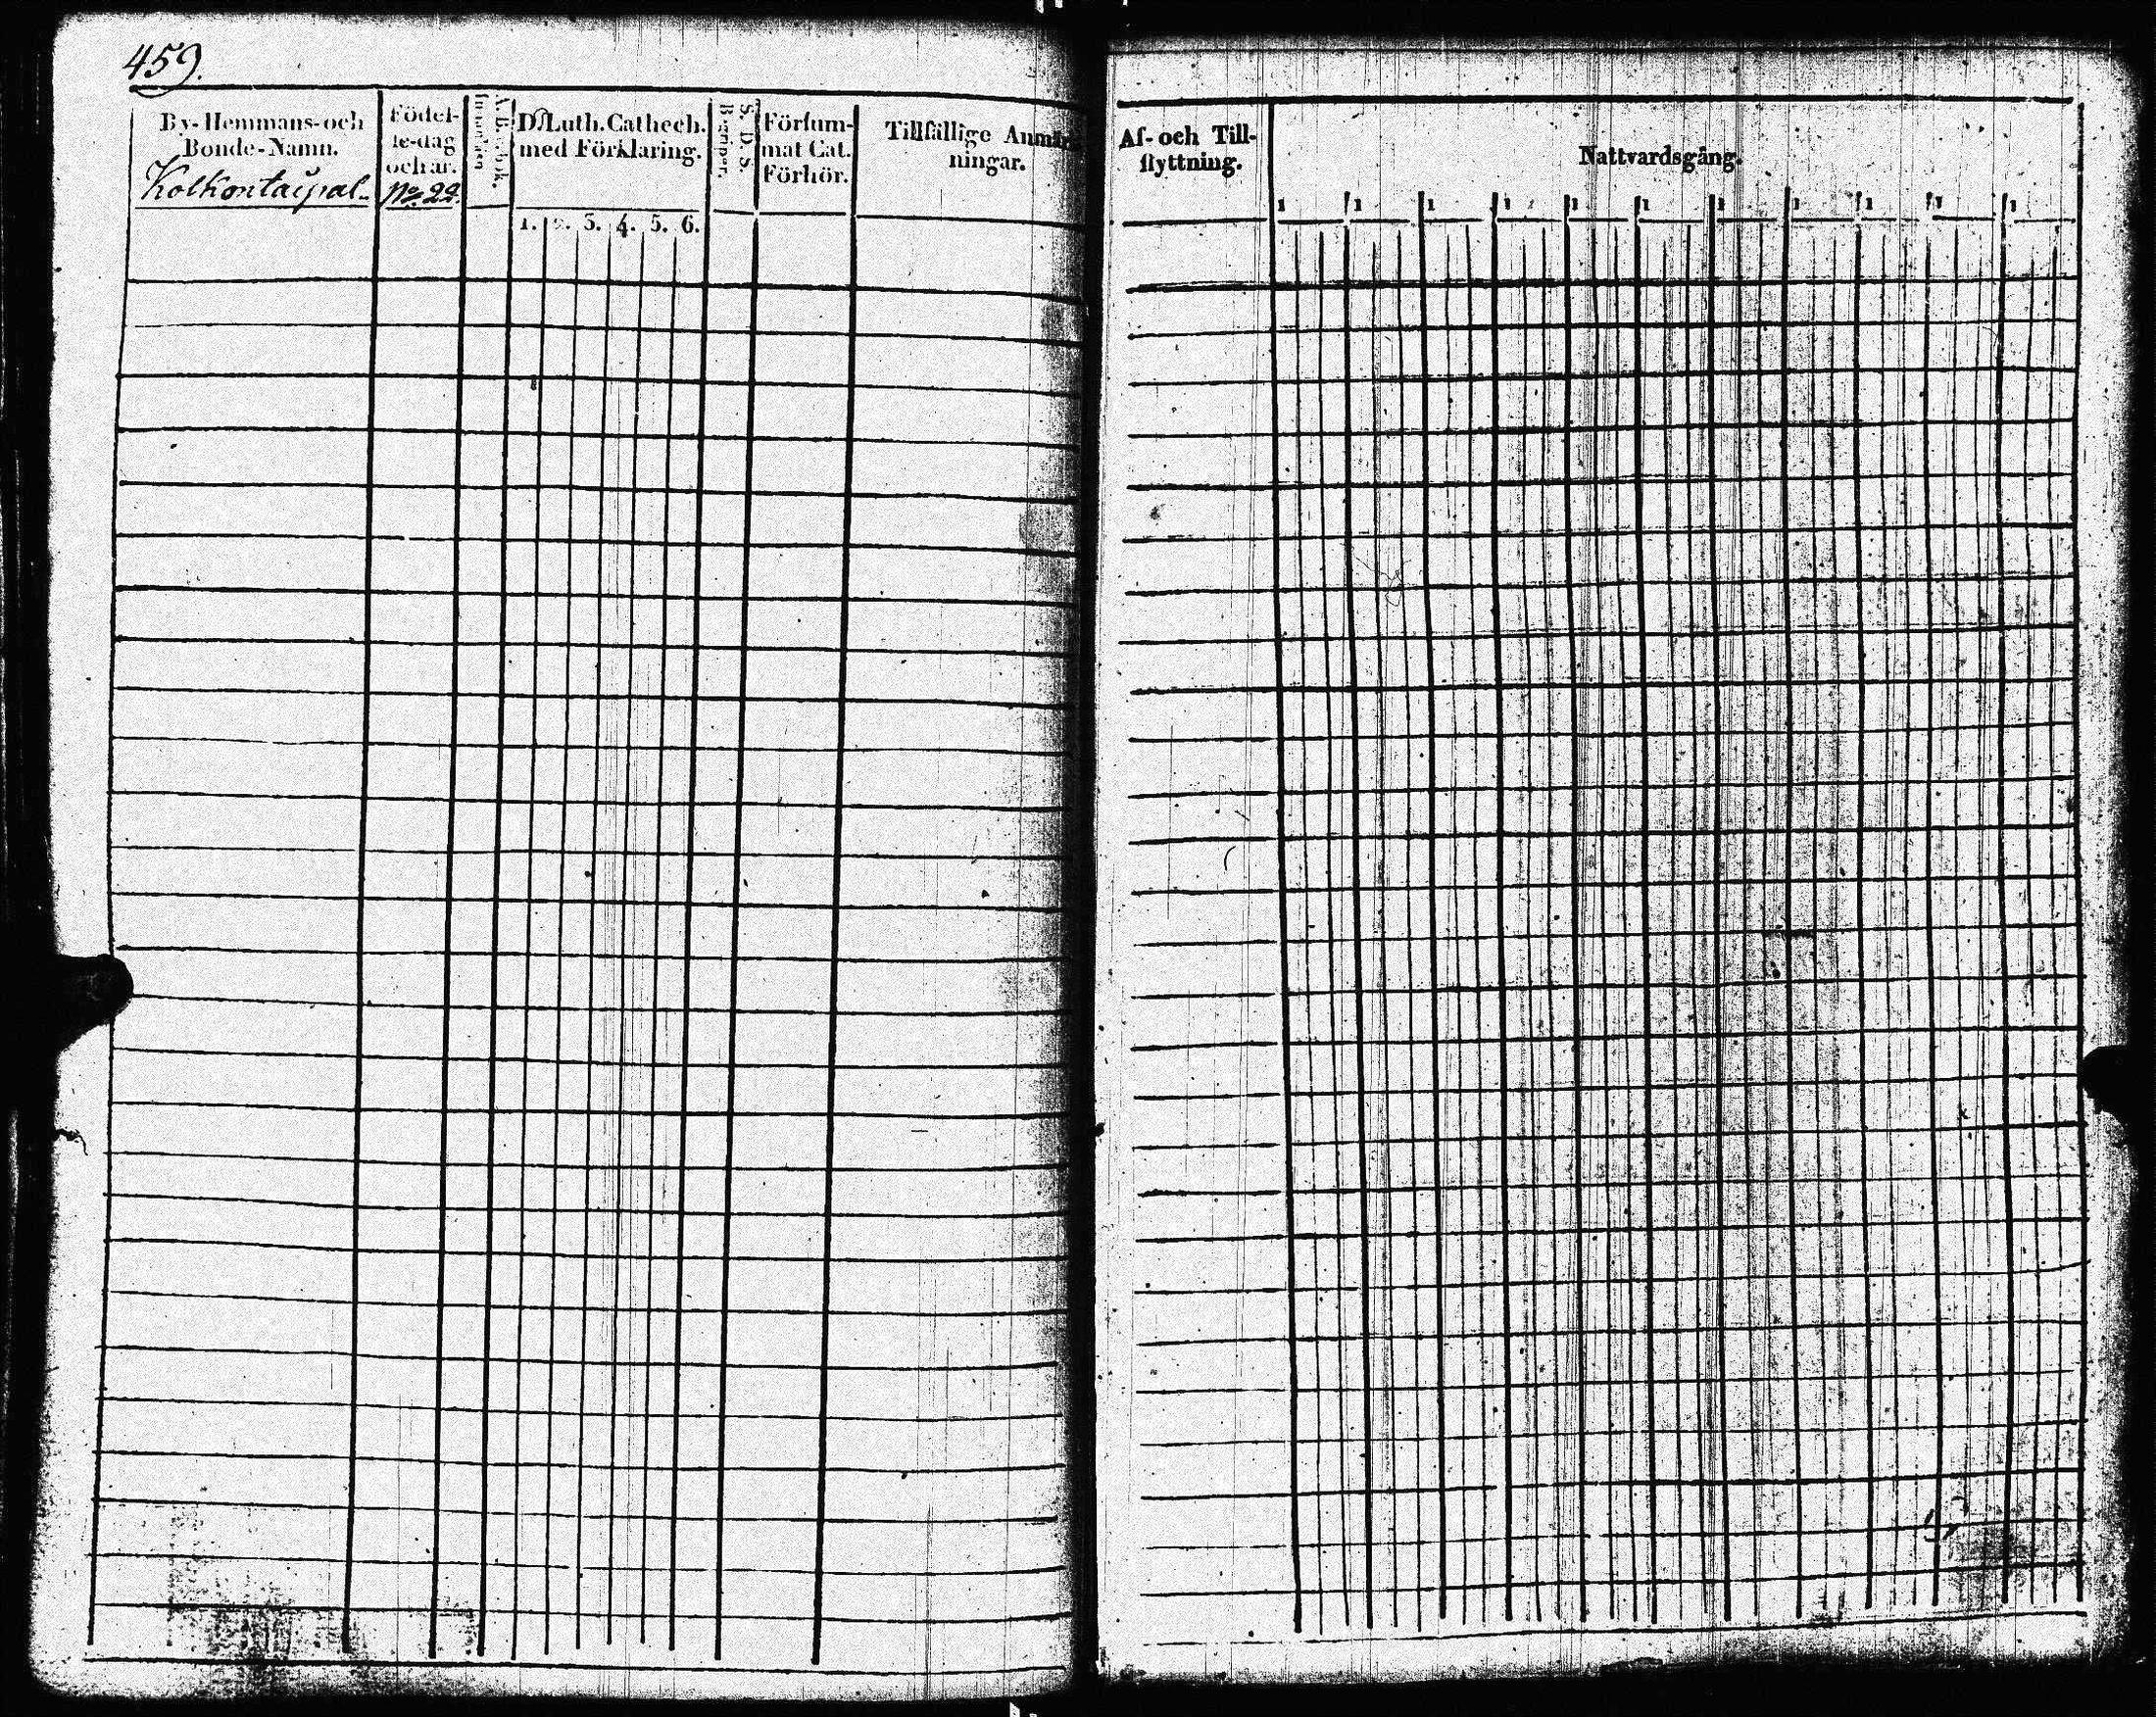 459.
By-Hemmans-och
Bonde-Namn.
Kolkontaipal.
Födel-
se-dag
och år.
No 22.
A.B.C. bok.
Innanläsn.
D. Luth. Cathech.
med Förklaring.
1. 2. 3. 4. 5. 6.
S. D. S.
Begriper.
Försum-
mat Cat.
Förhör.
Tillfällige Anmärk
ningar.
Af- och Till-
flyttning.
Nattvardsgång.
1 1 1 1 1 1 1 1 1 1 1